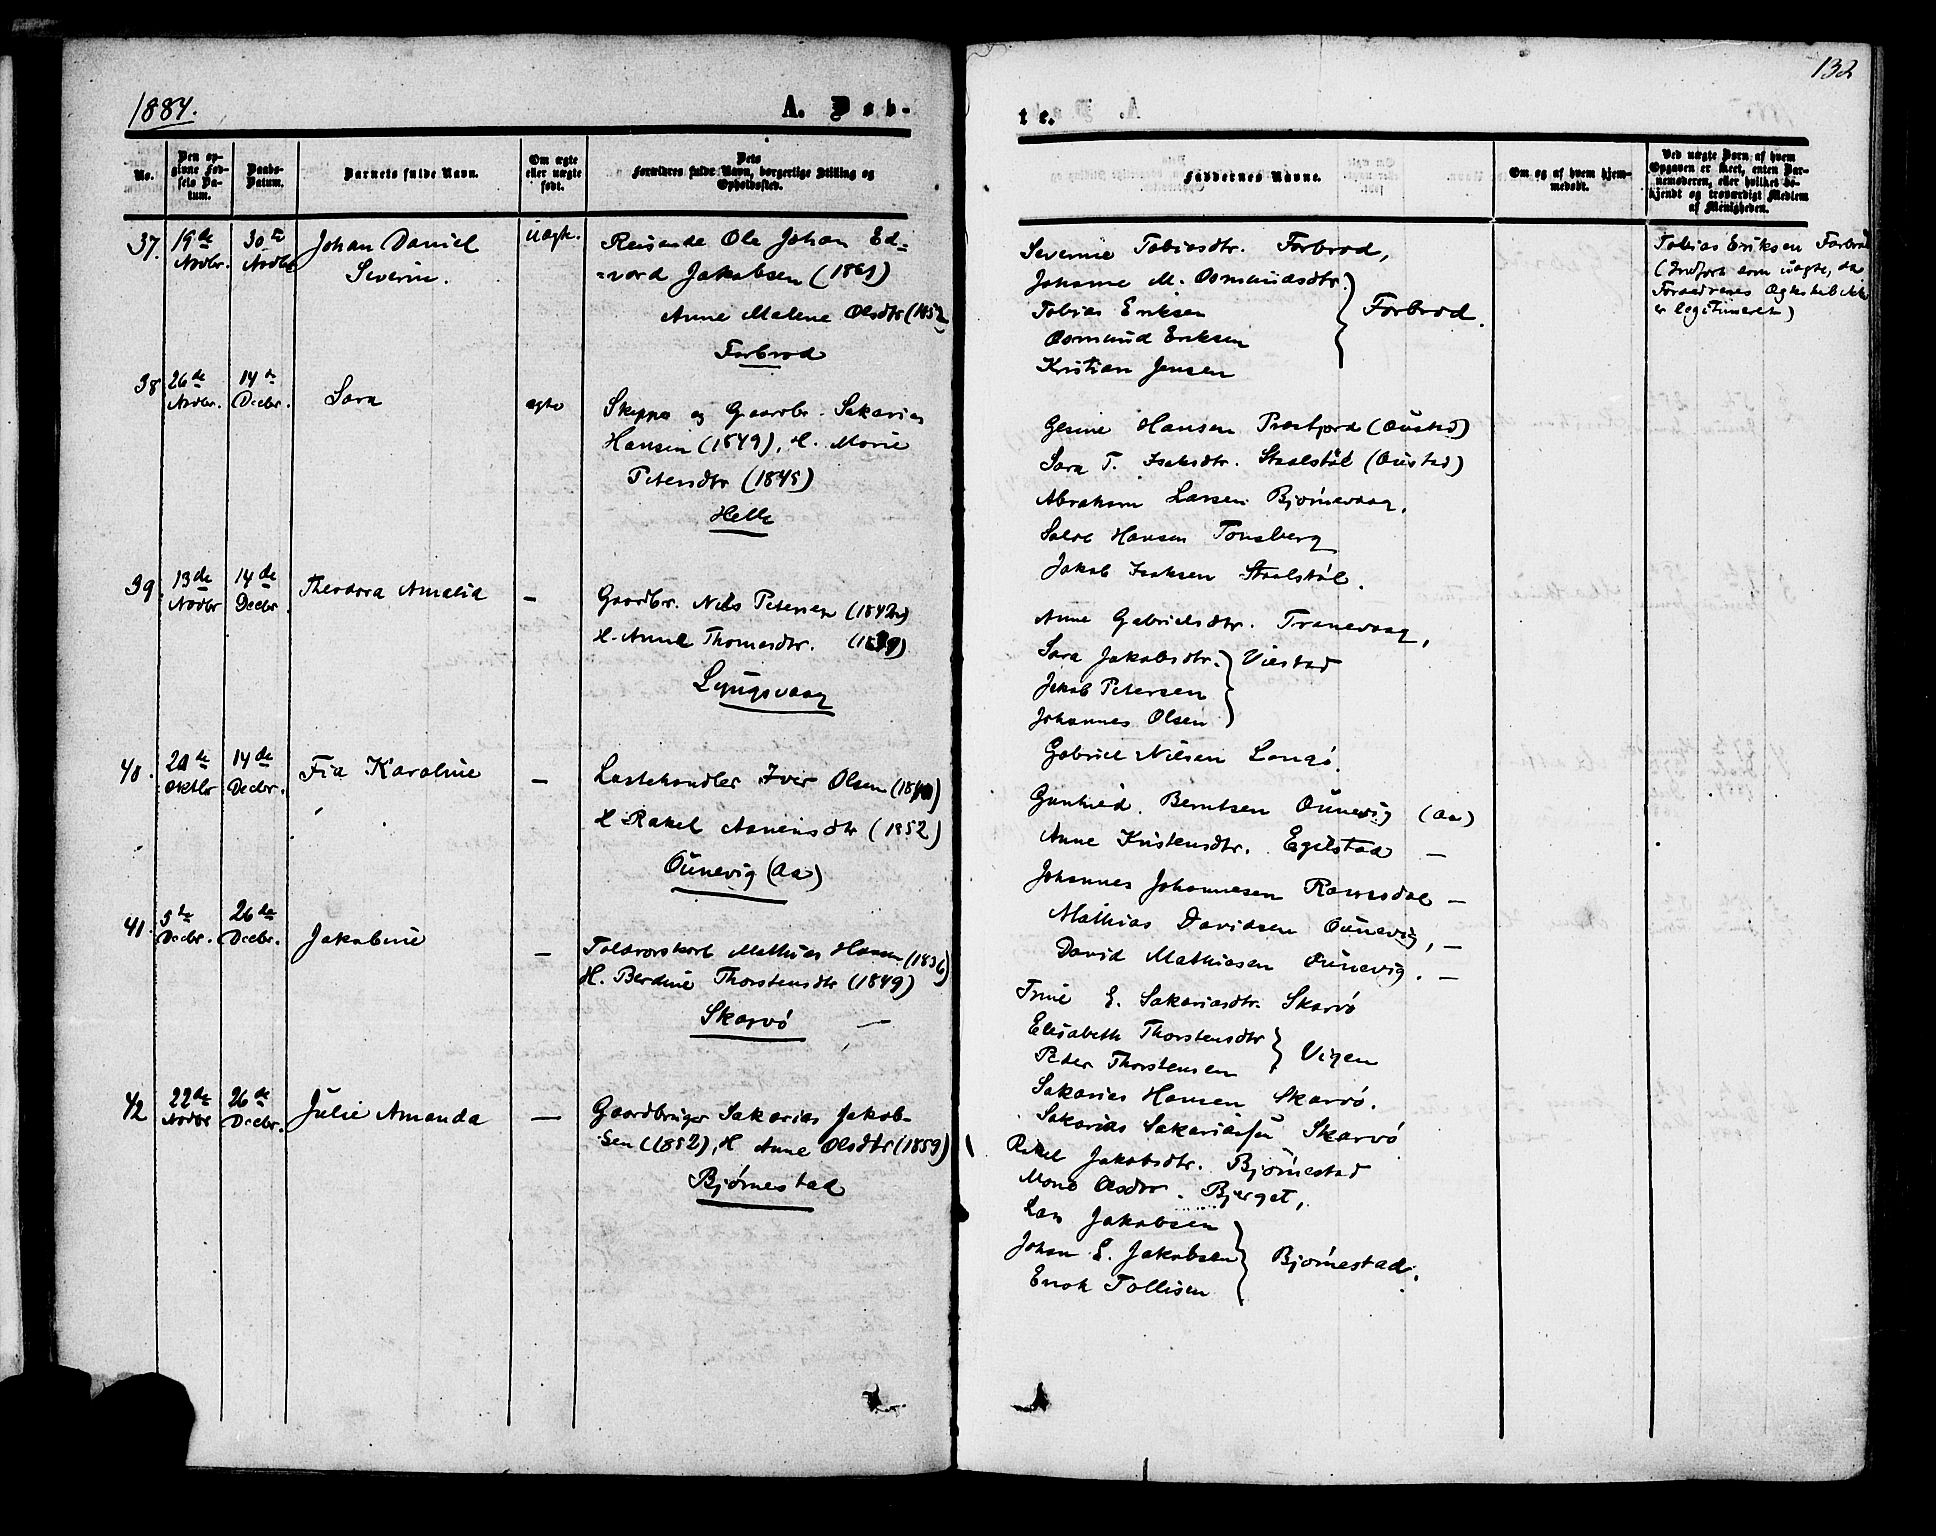 1884.
A. Døb-
No.
Den op-
givne Fød-
sels Da-
tum.
Daabs-
Datum.
Barnets fulde Navn.
Om ægte
eller uægte
født.
Dets
Forældres fulde Navn, borgerlige Stilling og
Opholdssted.
37.
19de
Novbr.
30te
Novbr
Johan Daniel
Severin.
Uægte.
Reisende Ole Johan Ed=
=vard Jakobsen (1861)
Anne Malene Olsdtr (1852)
Forbrod
38
26de
Novbr.
14de
Decbr.
Sara
ægte
Skipper og Gaardbr. Sakarias
Hansen (1849), H. Marie
Petersdtr (1845)
Helle
39.
13de
Novbr
14de
Decbr.
Theodora Amalia
—
Gaardbr. Nils Petersen (1842)
H. Anne Thomasdtr. (1839)
Lyngsvaag
40.
Oktbr
14de
Decbr.
Fia Karoline
—
Lastehandler Iver Olsen
H. Rakel Asmensdtr (1852)
Ounevig (Aa)
41.
5te
Decbr.
26de
Decbr.
Jakobine
—
Toldrorskarl Mathias Hansen (1836)
H. Berdine Thorstensdtr (1849)
Skarvö —
42
22de
Novbr
26de
Decbr.
Julie Amanda
—
Gaardbruger Sakarias Jakob-
sen (1852), H Anne Olsdtr (1859)
Bjørnestad
132
te.
Faddernes Navne.
Om og af hvem hjem-
medøbt.
Ved uægte Børn af hvem
Opgaven er skeet, enten Bar-
nemoderen, eller hvilket be-
kjendt og troværdigt Medlem
af Menigheden.
Severine Tobiasdtr. Forbrod,
Johanne M. Osmundsdtr.
Tobias Eriksen
Osmund Eriksen
Forbrod.
Kristian Jensen
Tobias Eriksen Forbrod
(Indført som uægte, da
Forældrenes Ægteskab ikke
er legitimeret)
Gesine Hansen Præstfjord (Oustad)
Sara T. Isaksdtr. Staalstöl (Oustad)
Abraham Larsen Bjørnevaag,
Salve Hansen Tønsberg
Jakob Isaksen Staalstöl.
Anne Gabrielsdtr. Tranevaag,
Sara Jakobsdtr.
Jakob Petersen
Johannes Olsen
Viestad
Gabriel Nilsen Langö.
Gunhild Berntsen Ounevig (Aa)
Anne Kristensdtr. Egilstad —
Johannes Johannesen Ramsdal —
Mathias Davidsen Ounevig, —
David Mathiasen Ounevig. —
Trine E. Sakariasdtr. Skarvö
Elisabeth Thorstensdtr
Peder Thorstensen
Vigen
Sakarias Hansen Skarvö.
Sakarias Sakariassen Skarvö
Rakel Jakobsdtr. Bjørnestad
Mone Olsdtr. Bjerget,
Lars Jakobsen
Johan E. Jakobsen
Enok Tollisen
Bjørnestad.